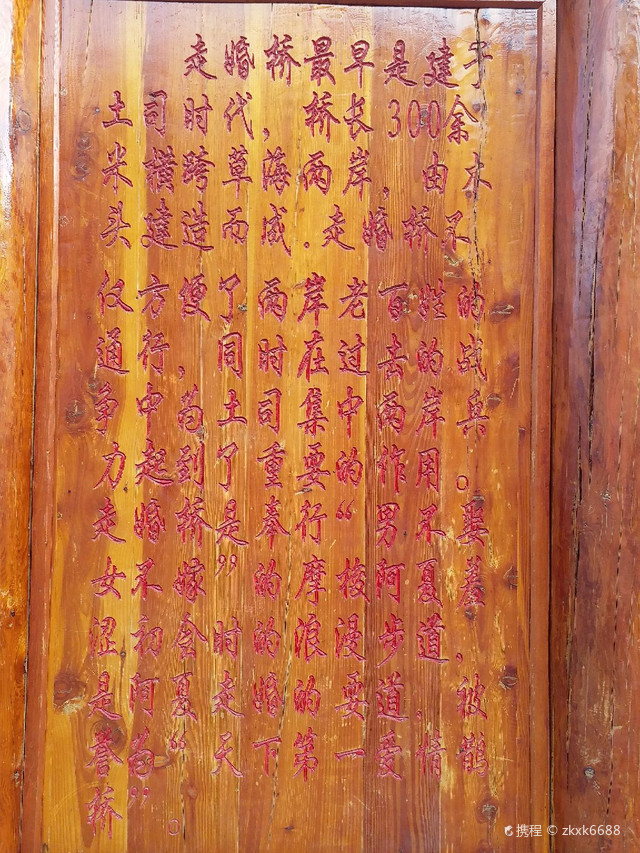 走婚桥最早是建于
土司时代,桥长300余
米横跨草海两岸,由木
头建造而成.走婚桥不
仅方便了两岸老百姓的
通行,同时在过去的战
争中为土司集中两岸兵
力起到了重要的作用。
走婚桥是奉行“男不娶
女不嫁”的摩梭阿夏慕
涩初会时的浪漫步道,
是阿夏走婚的要道,被
誉为“天下第一爱情鹊
桥”。
携程 © zkxk6688